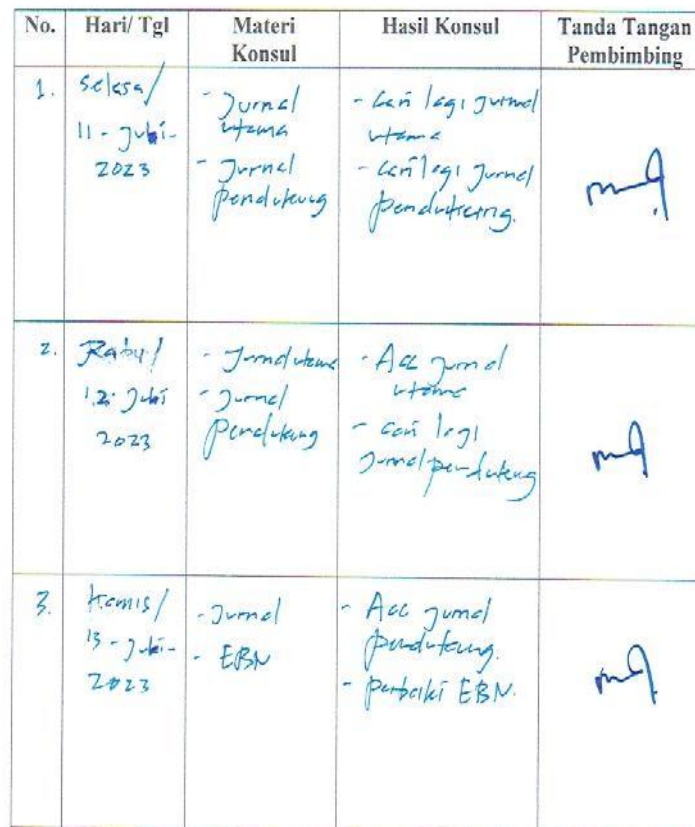 No.
Hari/ Tgl
Materi
Konsul
Hasil Konsul
Tanda Tangan
Pembimbing
1.
Selasa/
11 - Juli -
2023
- Jurnal
utama
- Jurnal
pendukung
- Cari lagi jurnal
utama
- Cari lagi jurnal
pendukung.
2.
Rabu/
12. Juli
2023
- Jurnal utama
- Jurnal
pendukung
- Acc jurnal
utama
- cari lagi
jurnal pendukung
3.
Kamis/
13 - Juli -
2023
- Jurnal
- EBN
- Acc jurnal
pendukung.
- perbaiki EBN.